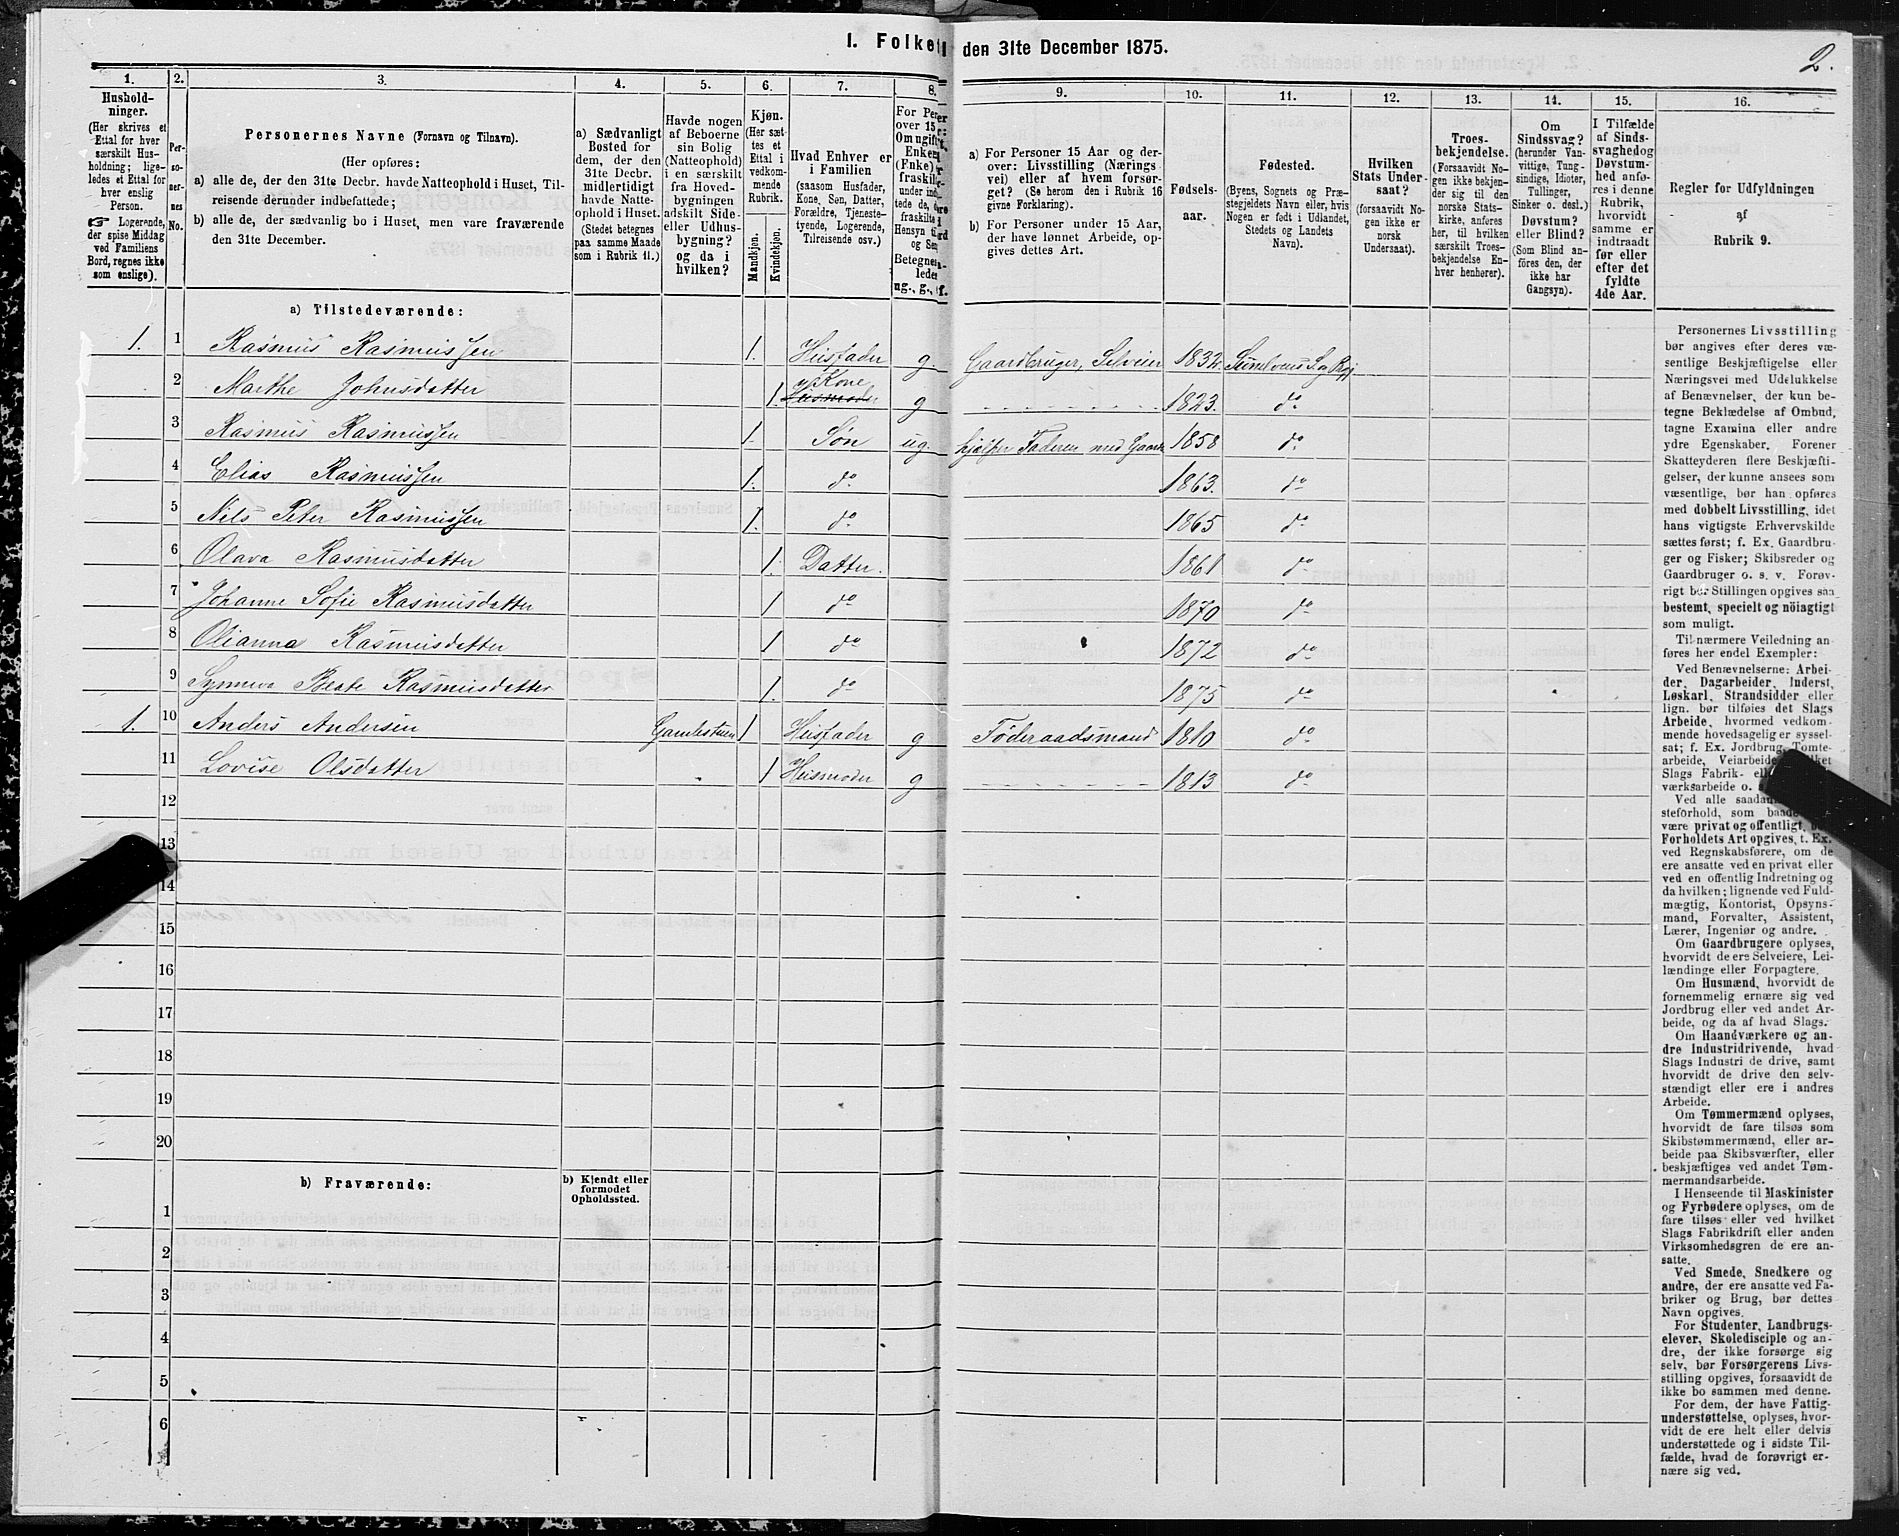 I. Folket
den 31te December 1875.
2.
1. 2. 3. 4. 5. 6. 7. 8. 9. 10. 11. 12. 13. 14. 15. 16.
Hushold-
ninger.
(Her skrives et
Ettal for hver
særskilt Hus-
holdning; lige-
ledes et Ettal for
hver enslig
Person.
☞ Logerende,
der spise Middag
ved Familiens
Bord, regnes ikke
som enslige).
Per-
so-
ner-
nes
No.
Personernes Navne (Fornavn og Tilnavn).
(Her opføres:
a) alle de, der den 31te Decbr. havde Natteophold i Huset, Til-
reisende derunder indbefattede;
b) alle de, der sædvanlig bo i Huset, men vare fraværende
den 31te December.
a) Sædvanligt
Bosted for
dem, der den
31te Decbr.
midlertidigt
havde Natte-
ophold i Huset.
(Stedet betegnes
paa samme Maade
som i Rubrik 11.)
Havde nogen
af Beboerne
sin Bolig
(Natteophold)
i en særskilt
fra Hoved-
bygningen
adskilt Side-
eller Udhus-
bygning?
og da i
hvilken?
Kjøn.
(Her sæt-
tes et
Ettal i
vedkom-
mende
Rubrik.
Mandkjøn.
Kvindekjøn.
Hvad Enhver er
i Familien
(saasom Husfader,
Kone, Søn, Datter,
Forældre, Tjeneste-
tyende, Logerende,
Tilreisende osv.)
For Per
over 15
Om ugift
Enken
(Fnke)
fraskilt
under ind
tede de,
fraskilte
Hensyn t
og Sen
Betegnes
ledes
ug., g., f.
a) For Personer 15 Aar og der-
over: Livsstilling (Nærings
vei) eller af hvem forsør-
get? (Se herom den i Rubrik 16
givne Forklaring).
b) For Personer under 15 Aar,
der have lønnet Arbeide, op-
gives dettes Art.
Fødsels-
aar.
Fødested.
(Byens, Sognets og Præ-
stegjeldets Navn eller, hvis
Nogen er født i Udlandet,
Stedets og Landets
Navn).
Hvilken
Stats Under-
saat?
(forsaavidt No-
gen ikke er
norsk
Undersaat).
Troes-
bekjendelse.
(Forsaavidt No-
gen ikke bekjen-
der sig til den
norske Stats-
kirke, anføres
her, til hvilken
særskilt Troes-
bekjendelse En-
hver henhører).
Om
Sindssvag?
(herunder Van-
vittige, Tung-
sindige, Idioter,
Tullinger,
Sinker o. desl.)
Døvstum?
eller Blind?
(Som Blind an-
føres den, der
ikke har
Gangsyn).
I Tilfælde
af Sinds-
svaghedog
Døvstum-
hed anfø-
res i denne
Rubrik,
hvorvidt
samme er
indtraadt
før eller
efter det
fyldte
4de Aar.
Regler for Udfyldningen
af
Rubrik 9.
a) Tilstedeværende:
1. 1 Rasmus Rasmussen 1. Husfader g. Gaardbruger, Selveier 1832.
2 Marthe Johnsdatter 1. Kone Husmoder g 1823. do
3 Rasmus Rasmussen 1. Søn ug. hjælper Faderen med Gaard 1858 do
4 Elias Rasmussen 1. do 1863. do
5 Nils Peter Rasmussen 1. do 1865 do
6 Olava Rasmusdatter 1. Datter. 1861 do
7 Johanne Sofie Rasmusdatter 1 do 1870 do
8 Olianna Rasmusdatter 1 do 1872 do
9 Synneva Beate Rasmusdatter 1. do 1875 do
1. 10 Anders Andersen Gamlestuen 1 Husfader g Föderaadsmand 1810 do
11 Lovise Olsdatter 1 Husmoder g 1813 do
12
13
14
15
16
17
18
19
20
b) Fraværende:
b) Kjendt eller
formodet
Opholdssted.
1
2
3
4
5
6
Personernes Livsstilling
bør angives efter deres væ-
sentlige Beskjæftigelse eller
Næringsvei med Udelukkelse
af Benævnelser, der kun be-
tegne Beklædelse af Ombud,
tagne Examina eller andre
ydre Egenskaber. Forener
Skatteyderen flere Beskjæfti-
gelser, der kunne ansees som
væsentlige, bør han opføres
med dobbelt Livsstilling, idet
hans vigtigste Erhvervskilde
sættes først; f. Ex. Gaardbru-
ger og Fisker; Skibsreder og
Gaardbruger o. s. v. Forøv-
rigt bør Stillingen opgives saa
bestemt, specielt og nöiagtigt
som muligt.
Til nærmere Veiledning an-
føres her endel Exempler:
Ved Benævnelserne: Arbei-
der, Dagarbeider, Inderst,
Løskarl, Strandsidder eller
lign. bør tilføies det Slags
Arbeide, hvormed vedkom-
mende hovedsagelig er syssel-
sat; f. Ex. Jordbrug, Tomte-
arbeide, Veiarbeide
Slags Fabrik-
værksarbeide o.
Ved alle saadan
steforhold, som baade
være privat og offentligt,
Forholdets Art opgives, t. Ex.
ved Regnskabsførere, om de
ere ansatte ved en privat eller
ved en offentlig Indretning og
da hvilken; lignende ved Fuld-
mægtig, Kontorist, Opsyns-
mand, Forvalter, Assistent,
Lærer, Ingeniør og andre.
Om Gaardbrugere oplyses,
hvorvidt de ere Selveiere, Lei-
lændinge eller Forpagtere.
Om Husmænd, hvorvidt de
fornemmelig ernære sig ved
Jordbrug eller ved andet Ar-
beide, og da af hvad Slags.
Om Haandværkere og an-
dre Industridrivende, hvad
Slags Industri de drive, samt
hvorvidt de drive den selv-
stændigt eller ere i andres
Arbeide.
Om Tømmermænd oplyses,
hvorvidt de fare tilsøs som
Skibstømmermænd, eller ar-
beide paa Skibsværfter, eller
beskjæftiges ved andet Tøm-
mermandsarbeide.
I Henseende til Maskinister
og Fyrbødere oplyses, om de
fare tilsøs eller ved hvilket
Slags Fabrikdrift eller anden
Virksomhedsgren de ere an-
satte.
Ved Smede, Snedkere og
andre, der ere ansatte ved Fa-
briker og Brug, bør dettes
Navn opgives.
For Studenter, Landbrugs-
elever, Skoledisciple og an-
dre, der ikke forsørge sig
selv, bør Forsørgerens Livs-
stilling opgives, forsaavidt de
ikke bo sammen med denne.
For dem, der have Fattig-
understøttelse, oplyses, hvor-
vidt de ere helt eller delvis
understøttede og i sidste Til-
fælde, hvad de forøvrigt er-
nære sig ved.